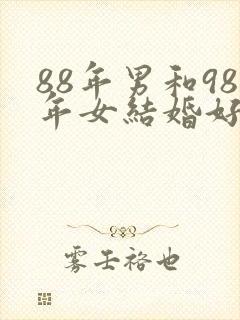 88年男和98
年女結婚好
雾壬袼也